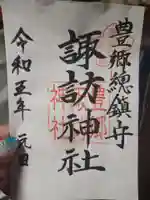 豊郷總鎮守
諏訪神社
令和五年 元日